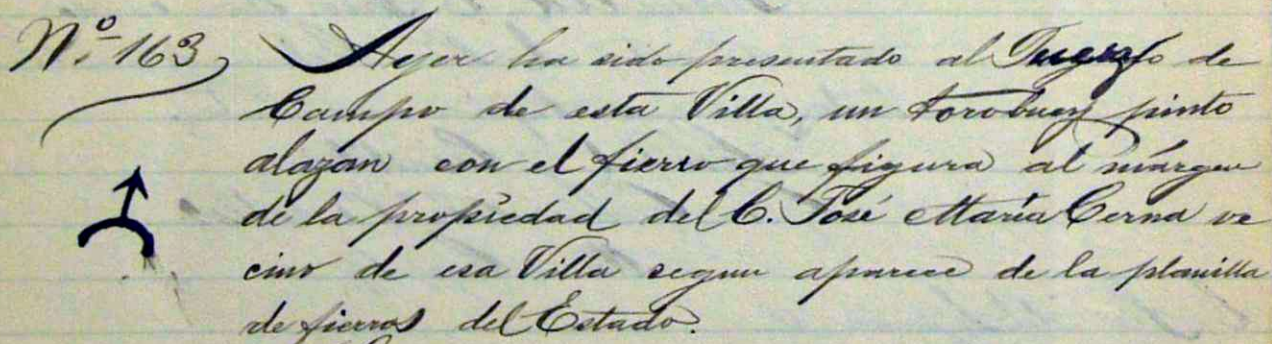 Nº 163, Ayer ha sido presentado al Juzgado de
Campo de esta Villa, un torobuey pinto
alazan con el fierro que figura al márgen
de la propiedad del C. José María Cerna ve
cino de esa Villa segun aparece de la planilla
de fierros del Estado.